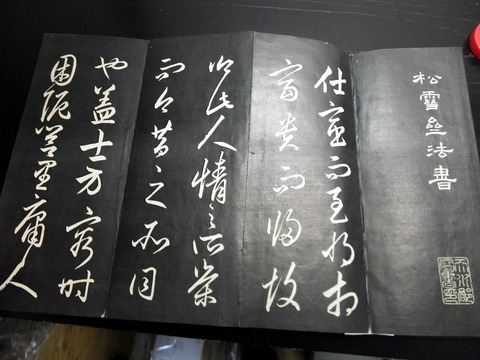 松雪齋法書
仕宦而至將相
富貴而歸故
鄉此人情之所榮
而今昔之所同
也蓋士方窮時
困阨閭里庸人
天水郡
圖書印